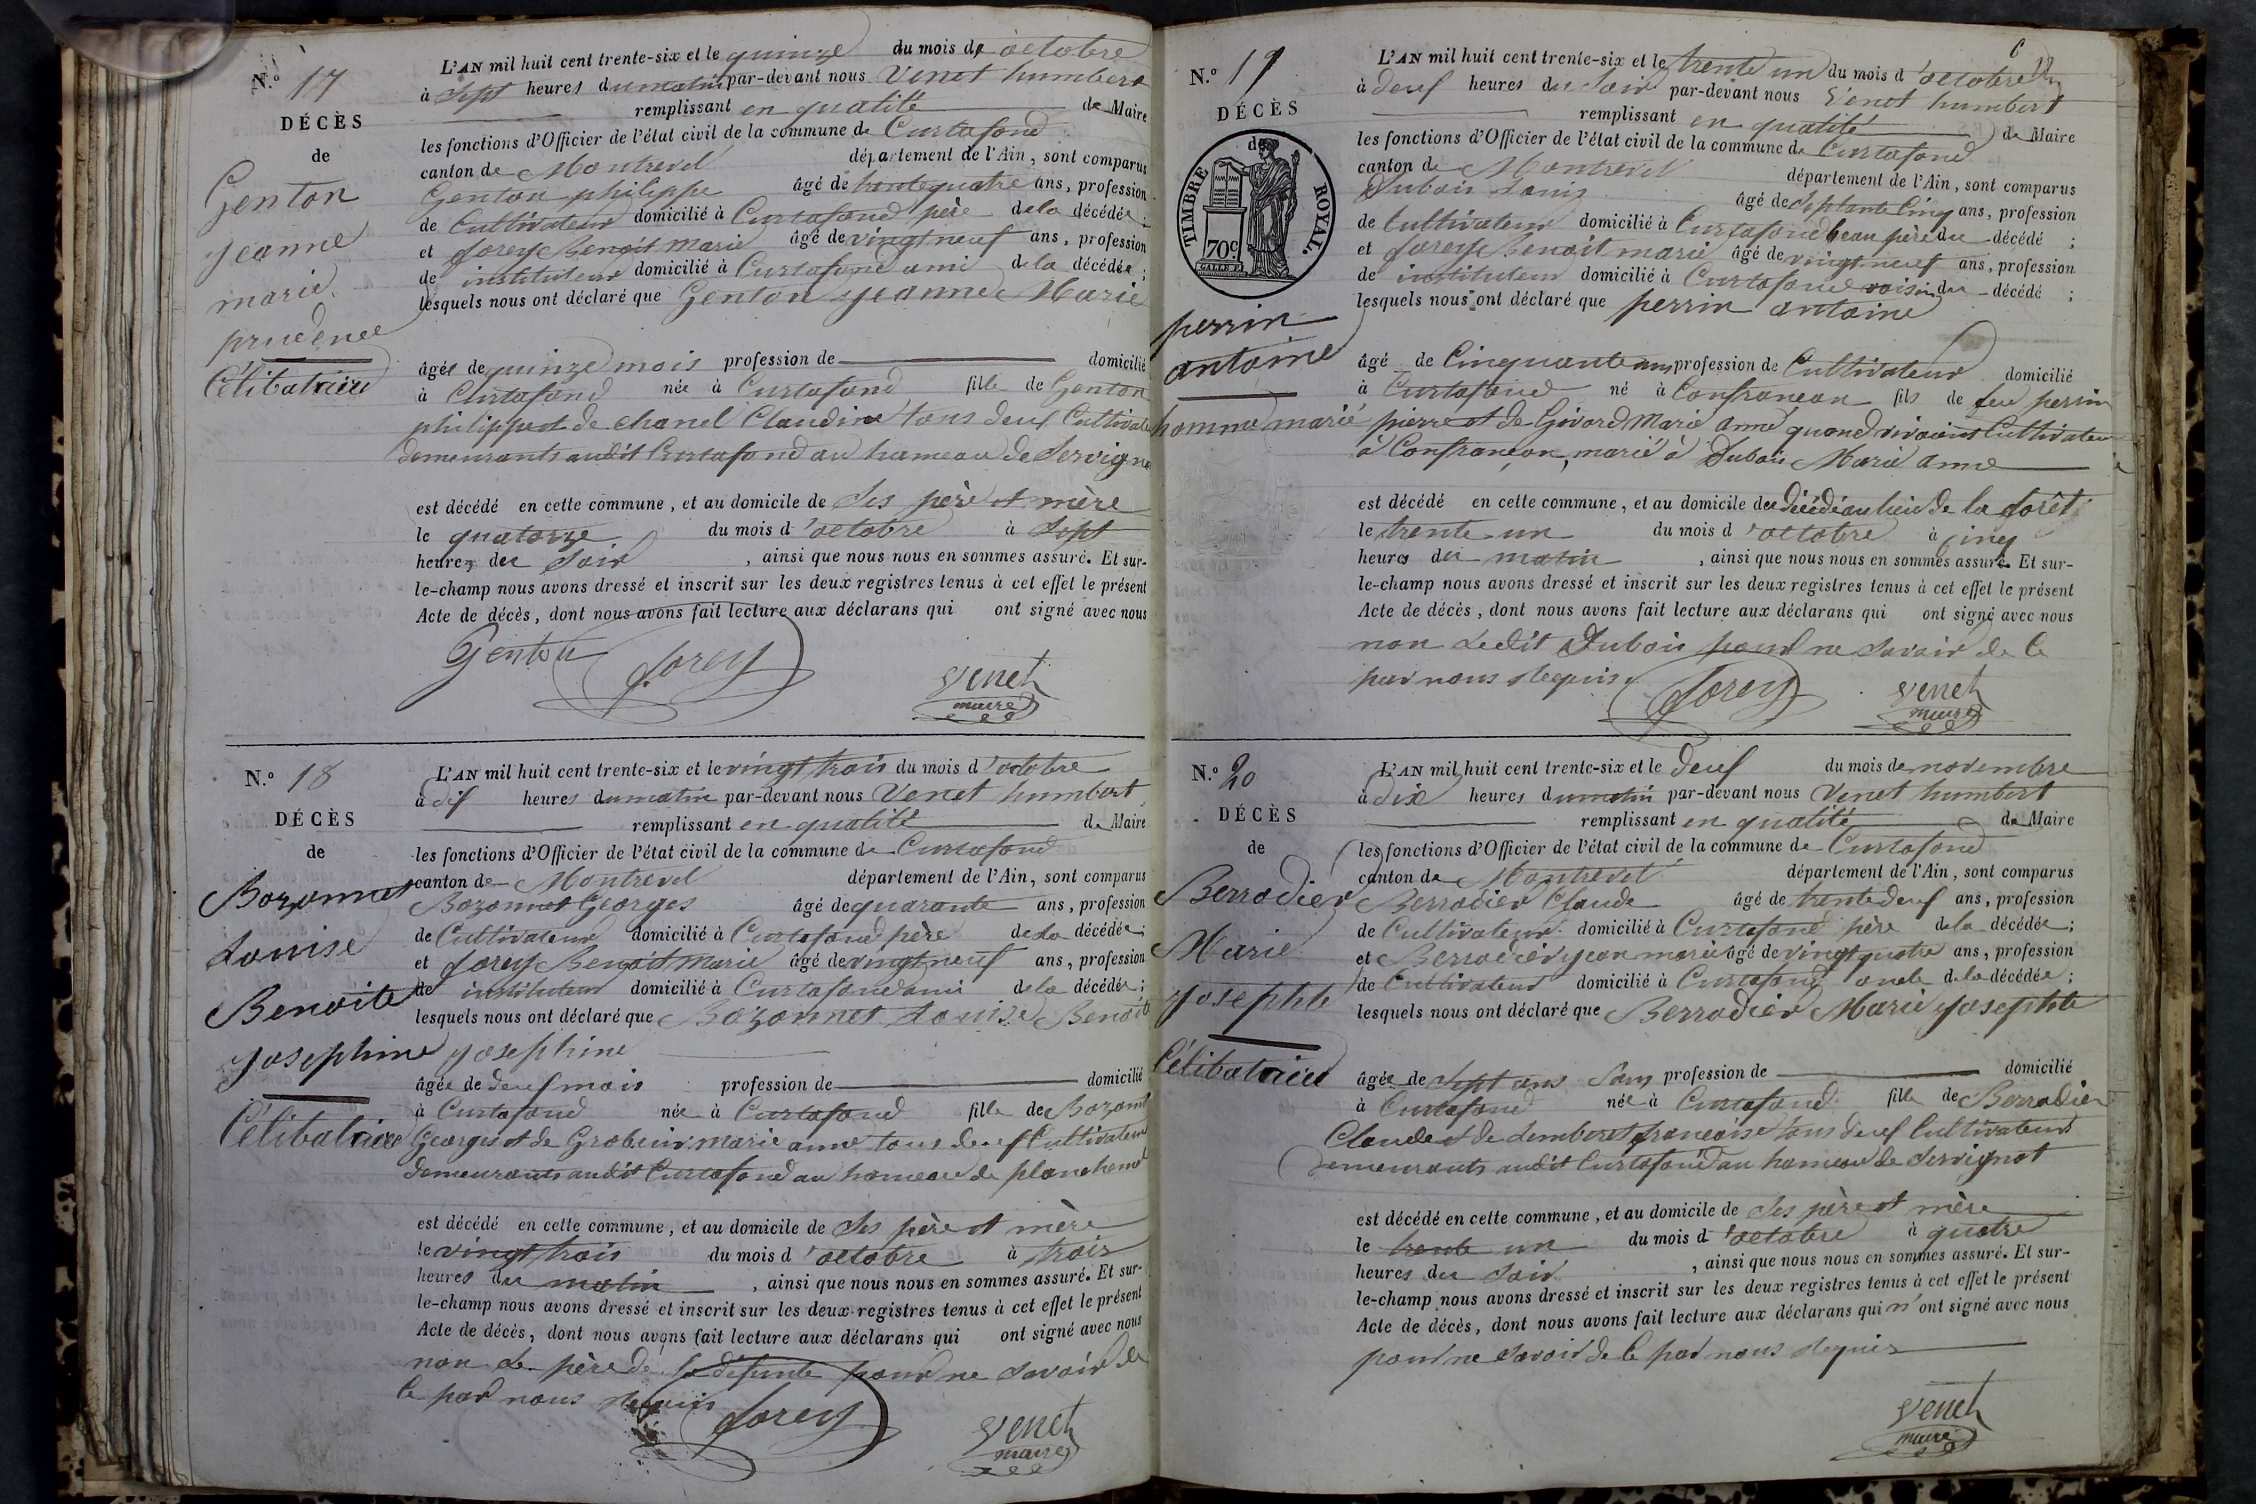 N.º 17
DÉCÈS
de
Genton
jeanne
marie
prudence
Célibataire
L'AN mil huit cent trente-six et le quinze du mois de octobre
à Sept heures du matin par-devant nous Venet humbert
remplissant en qualité de Maire
les fonctions d'Officier de l'état civil de la commune de Curtafond
canton de Montrevel département de l'Ain, sont comparus
Genton philippe âgé de trente quatre ans, profession
de Cultivateur domicilié à Curtafond père de la décédée ;
et Forey Benoit Marie âgé de vingt neuf ans, profession
de instituteur domicilié à Curtafond ami de la décédée ;
lesquels nous ont déclaré que Genton jeanne Marie
âgée de quinze mois profession de domicilié
à Curtafond née à Curtafond fille de Genton
philippe et de chanel Claudine tous deux Cultivateurs
demeurants audit Curtafond au hameau de Servigna
est décédé en cette commune, et au domicile de Ses père et mère
le quatorze du mois d'octobre à Sept
heures du Soir, ainsi que nous nous en sommes assuré. Et sur-
le-champ nous avons dressé et inscrit sur les deux registres tenus à cet effet le présent
Acte de décès, dont nous avons fait lecture aux déclarans qui ont signé avec nous
Genton Forey Venet
maire
N.º 18
DÉCÈS
de
Bozonnet
Louise
Benoite
josephine
Célibataire
L'AN mil huit cent trente-six et le vingt trois du mois d'octobre
à dix heures du matin par-devant nous Venet humbert
remplissant en qualité de Maire
les fonctions d'Officier de l'état civil de la commune de Curtafond
canton de Montrevel département de l'Ain, sont comparus
Bozonnet Georges âgé de quarante ans, profession
de Cultivateur domicilié à Curtafond père de la décédée ;
et Forey Benoit Marie âgé de vingt neuf ans, profession
de instituteur domicilié à Curtafond ami de la décédée ;
lesquels nous ont déclaré que Bozonnet Louise Benoite
josephine
âgée de deux mois profession de domicilié
à Curtafond née à Curtafond fille de Bozonnet
Georges et de marie anne tous deux Cultivateurs
demeurants audit Curtafond au hameau de
est décédé en cette commune, et au domicile de Ses père et mère
le vingt trois du mois d'octobre à trois
heures du matin, ainsi que nous nous en sommes assuré. Et sur-
le-champ nous avons dressé et inscrit sur les deux registres tenus à cet effet le présent
Acte de décès, dont nous avons fait lecture aux déclarans qui ont signé avec nous
non le père de la défunte pour ne savoir de
le par nous requis
Forey Venet
maire
N.º 19
DÉCÈS
de
TIMBRE ROYAL
70 c.
perrin
antoine
homme marié
L'AN mil huit cent trente-six et le trente un du mois d'octobre
à deux heures du Soir par-devant nous Venet humbert
remplissant en qualité de Maire
les fonctions d'Officier de l'état civil de la commune de Curtafond
canton de Montrevel département de l'Ain, sont comparus
Dubois Louis âgé de Septante Cinq ans, profession
de Cultivateur domicilié à Curtafond beau père du décédé ;
et Forey Benoit marie âgé de vingt neuf ans, profession
de instituteur domicilié à Curtafond voisin du décédé ;
lesquels nous ont déclaré que perrin antoine
âgé de Cinquante ans profession de Cultivateur domicilié
à Curtafond né à Confrancon fils de feu perrin
pierre et de Givord Marie anne quand vivaient Cultivateurs
à Confrancon, marié à Dubois Marie anne
est décédé en cette commune, et au domicile du décédé au lieu de la forêt
le trente un du mois d'octobre à Cinq
heures du matin, ainsi que nous nous en sommes assuré. Et sur-
le-champ nous avons dressé et inscrit sur les deux registres tenus à cet effet le présent
Acte de décès, dont nous avons fait lecture aux déclarans qui ont signé avec nous
non Ledit Dubois pour ne savoir de le
par nous requis
Forey Venet
maire
N.º 20
DÉCÈS
de
Berrodier
Marie
josephte
Célibataire
L'AN mil huit cent trente-six et le deux du mois de novembre
à dix heures du matin par-devant nous Venet humbert
remplissant en qualité de Maire
les fonctions d'Officier de l'état civil de la commune de Curtafond
canton de Montrevel département de l'Ain, sont comparus
Berrodier Claude âgé de trente deux ans, profession
de Cultivateur domicilié à Curtafond père de la décédée ;
et Berrodier jean marie âgé de vingt quatre ans, profession
de Cultivateur domicilié à Curtafond oncle de la décédée ;
lesquels nous ont déclaré que Berrodier Marie josephte
âgée de sept ans Sans profession de domicilié
à Curtafond née à Curtafond fille de Berrodier
Claude et de françoise tous deux Cultivateurs
demeurants audit Curtafond au hameau de Servignat
est décédé en cette commune, et au domicile de Ses père et mère
le trente un du mois d'octobre à quatre
heures du Soir, ainsi que nous nous en sommes assuré. Et sur-
le-champ nous avons dressé et inscrit sur les deux registres tenus à cet effet le présent
Acte de décès, dont nous avons fait lecture aux déclarans qui n'ont signé avec nous
pour ne savoir de le par nous requis
Venet
maire